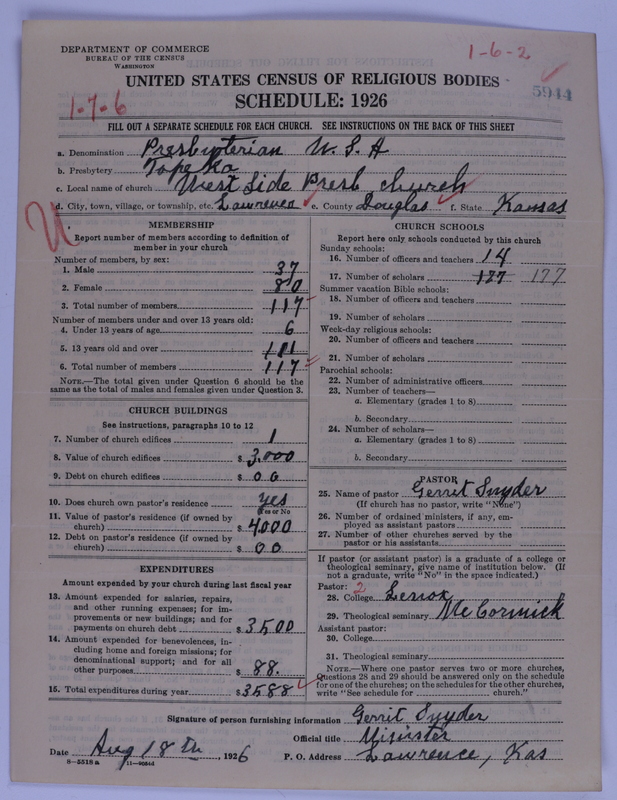 DEPARTMENT OF COMMERCE
BUREAU OF THE CENSUS
WASHINGTON
1-6-2
5944
UNITED STATES CENSUS OF RELIGIOUS BODIES
1-7-6
SCHEDULE: 1926
FILL OUT A SEPARATE SCHEDULE FOR EACH CHURCH. SEE INSTRUCTIONS ON THE BACK OF THIS SHEET
a. Denomination Presbyterian U.S.A
b. Presbytery Topeka
c. Local name of church West Side Presb church
d. City, town, village, or township, etc. Lawrence e. County Douglas f. State Kansas
MEMBERSHIP
Report number of members according to definition of
member in your church
Number of members, by sex:
1. Male 37
2. Female 80
3. Total number of members 117
Number of members under and over 13 years old:
4. Under 13 years of age 6
5. 13 years old and over 111
6. Total number of members 117
NOTE.—The total given under Question 6 should be the
same as the total of males and females given under Question 3.
CHURCH BUILDINGS
See instructions, paragraphs 10 to 12
7. Number of church edifices 1
8. Value of church edifices $ 3,000
9. Debt on church edifices $ 00
10. Does church own pastor's residence yes
Yes or No
11. Value of pastor's residence (if owned by
church) $ 4000
12. Debt on pastor's residence (if owned by
church) $ 00
EXPENDITURES
Amount expended by your church during last fiscal year
13. Amount expended for salaries, repairs,
and other running expenses; for im-
provements or new buildings; and for
payments on church debt $ 3500
14. Amount expended for benevolences, in-
cluding home and foreign missions; for
denominational support; and for all
other purposes $ 88.
15. Total expenditures during year $ 3588
CHURCH SCHOOLS
Report here only schools conducted by this church
Sunday schools:
16. Number of officers and teachers 14
17. Number of scholars 177 177
Summer vacation Bible schools:
18. Number of officers and teachers
19. Number of scholars
Week-day religious schools:
20. Number of officers and teachers
21. Number of scholars
Parochial schools:
22. Number of administrative officers
23. Number of teachers—
a. Elementary (grades 1 to 8)
b. Secondary
24. Number of scholars—
a. Elementary (grades 1 to 8)
b. Secondary
PASTOR
25. Name of pastor Gerrit Snyder
(If church has no pastor, write "None")
26. Number of ordained ministers, if any, em-
ployed as assistant pastors
27. Number of other churches served by the
pastor or his assistants
If pastor (or assistant pastor) is a graduate of a college or
theological seminary, give name of institution below. (If
not a graduate, write "No" in the space indicated.)
Pastor: 2
28. College Lenox
29. Theological seminary McCormick
Assistant pastor:
30. College
31. Theological seminary
NOTE.—Where one pastor serves two or more churches,
Questions 28 and 29 should be answered only on the schedule
for one of the churches; on the schedules for the other churches,
write "See schedule for church."
Signature of person furnishing information Gerrit Snyder
Official title Minister
Date Aug 18th, 1926 P. O. Address Lawrence, Kas
8-5518 a